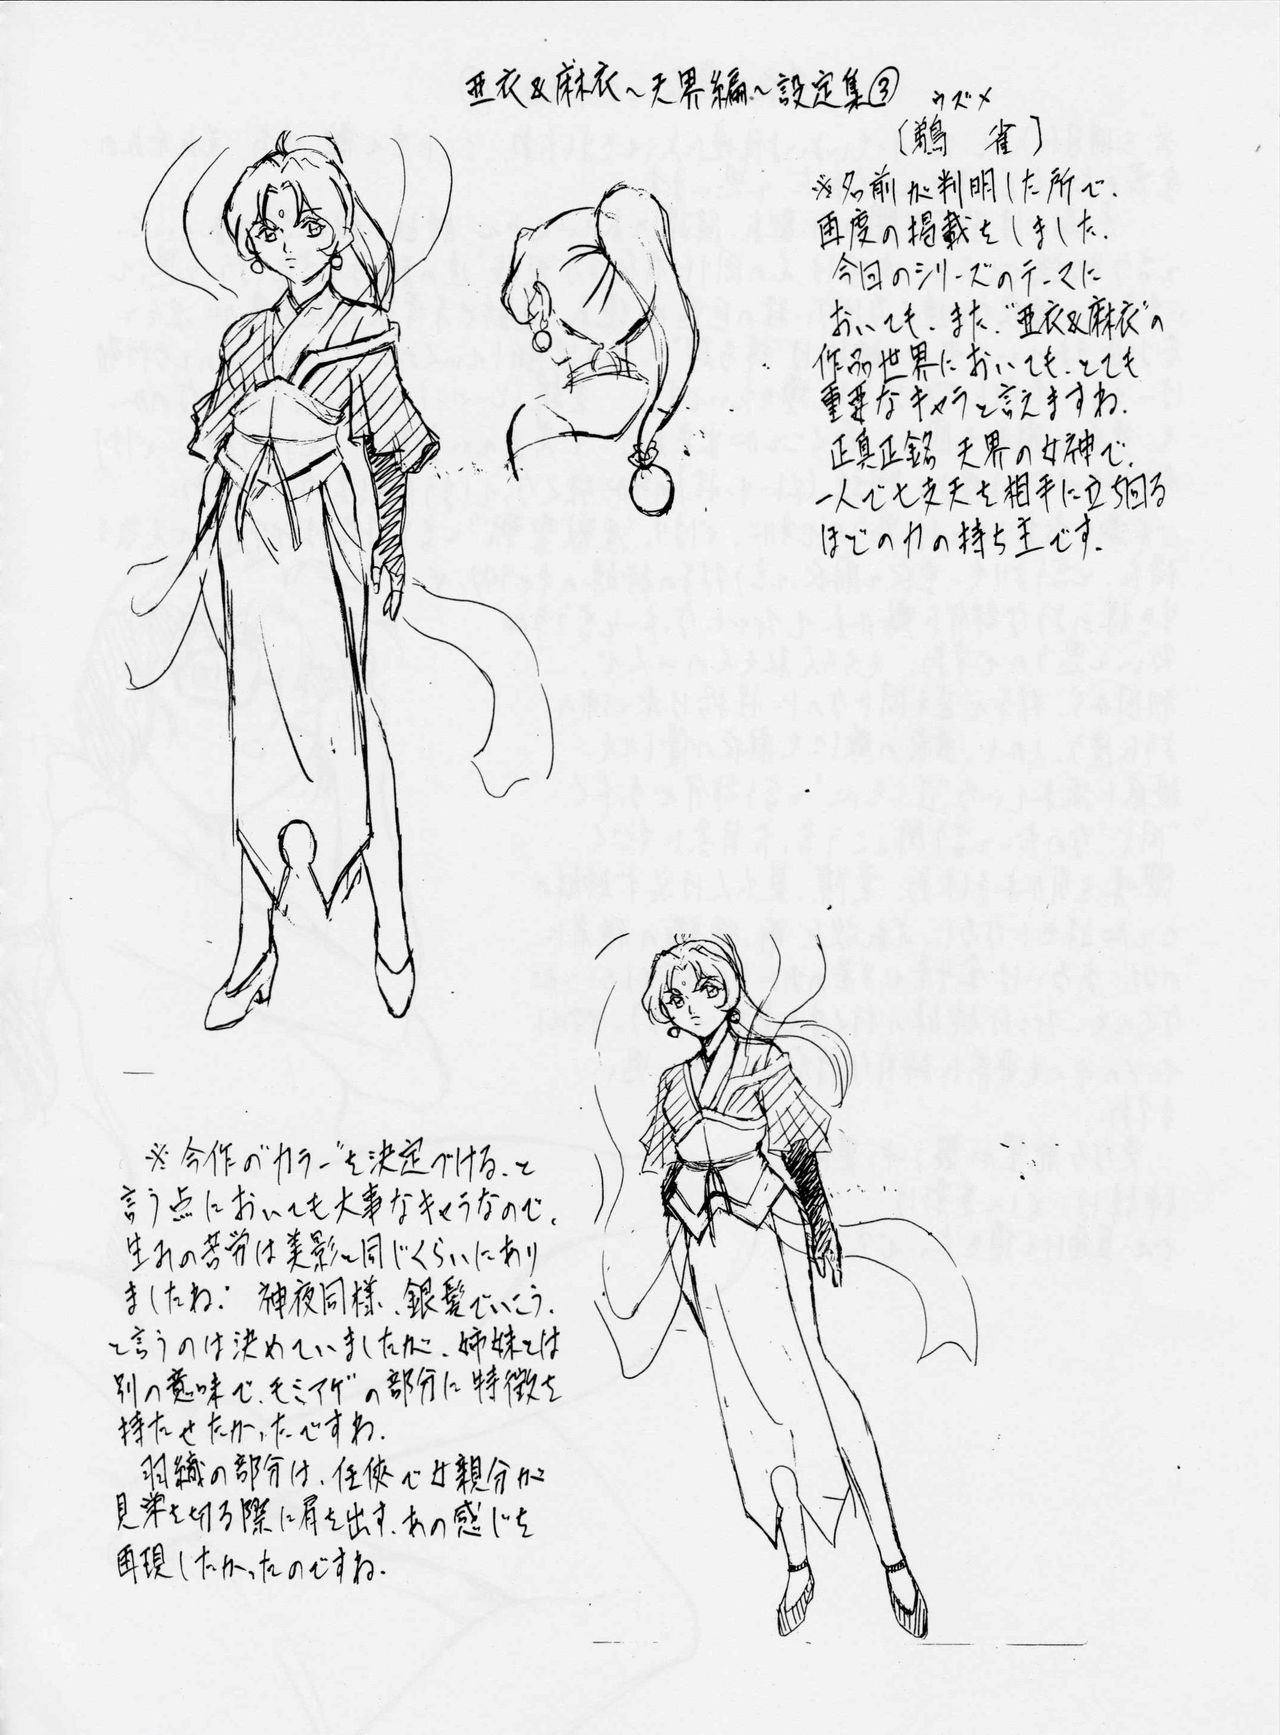 亜衣&麻衣～天界編～設定集③
ウズメ
〔鵜 雀〕
※名前が判明した所で、
再度の掲載をしました。
今回のシリーズのテーマに
おいても、また、"亜衣&麻衣"の
作品世界においても、とても
重要なキャラと言えますね。
正真正銘 天界の女神で、
一人で七支天を相手に立ち回る
ほどの力の持ち主です。
※今作の"カラー"を決定づける、と
言う点においても大事なキャラなので、
生みの苦労は美影と同じくらいにあり
ましたね。神夜同様、銀髪でいこう、
と言うのは決めていましたが、姉妹とは
別の意味で、モミアゲの部分に特徴を
持たせたかったですね。
羽織の部分は、任侠で女親分が
見栄を切る際に肩を出す、あの感じを
再現したかったのですね。